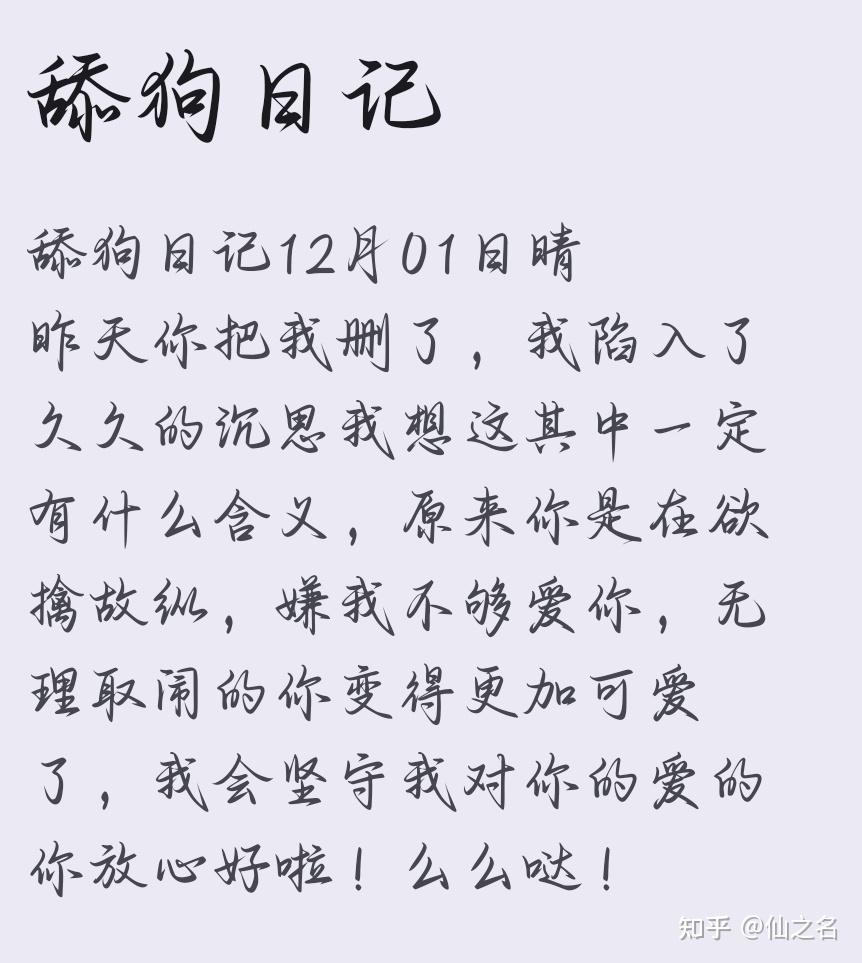 舔狗日记
舔狗日记12月01日晴
昨天你把我删了，我陷入了
久久的沉思我想这其中一定
有什么含义，原来你是在欲
擒故纵，嫌我不够爱你，无
理取闹的你变得更加可爱
了，我会坚守我对你的爱的
你放心好啦！么么哒！
知乎 @仙之名